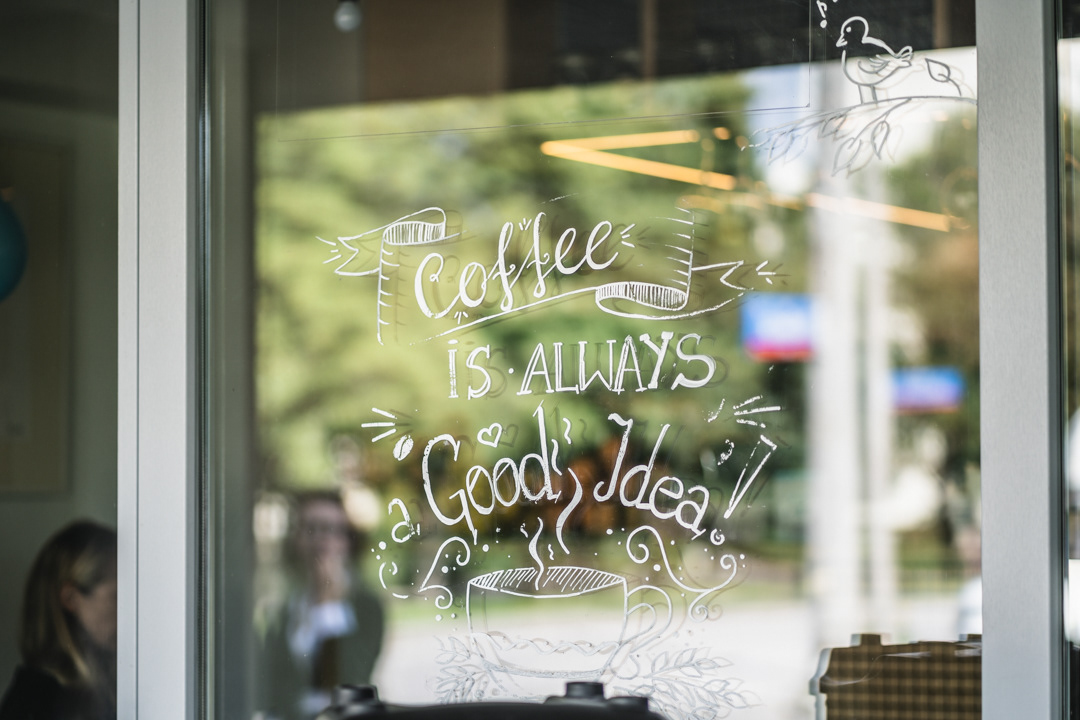 Coffee
is · ALWAYS
a Good Idea!